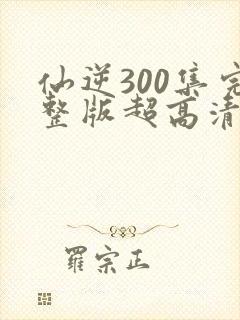 仙逆300集完
整版超高清
羅宗正